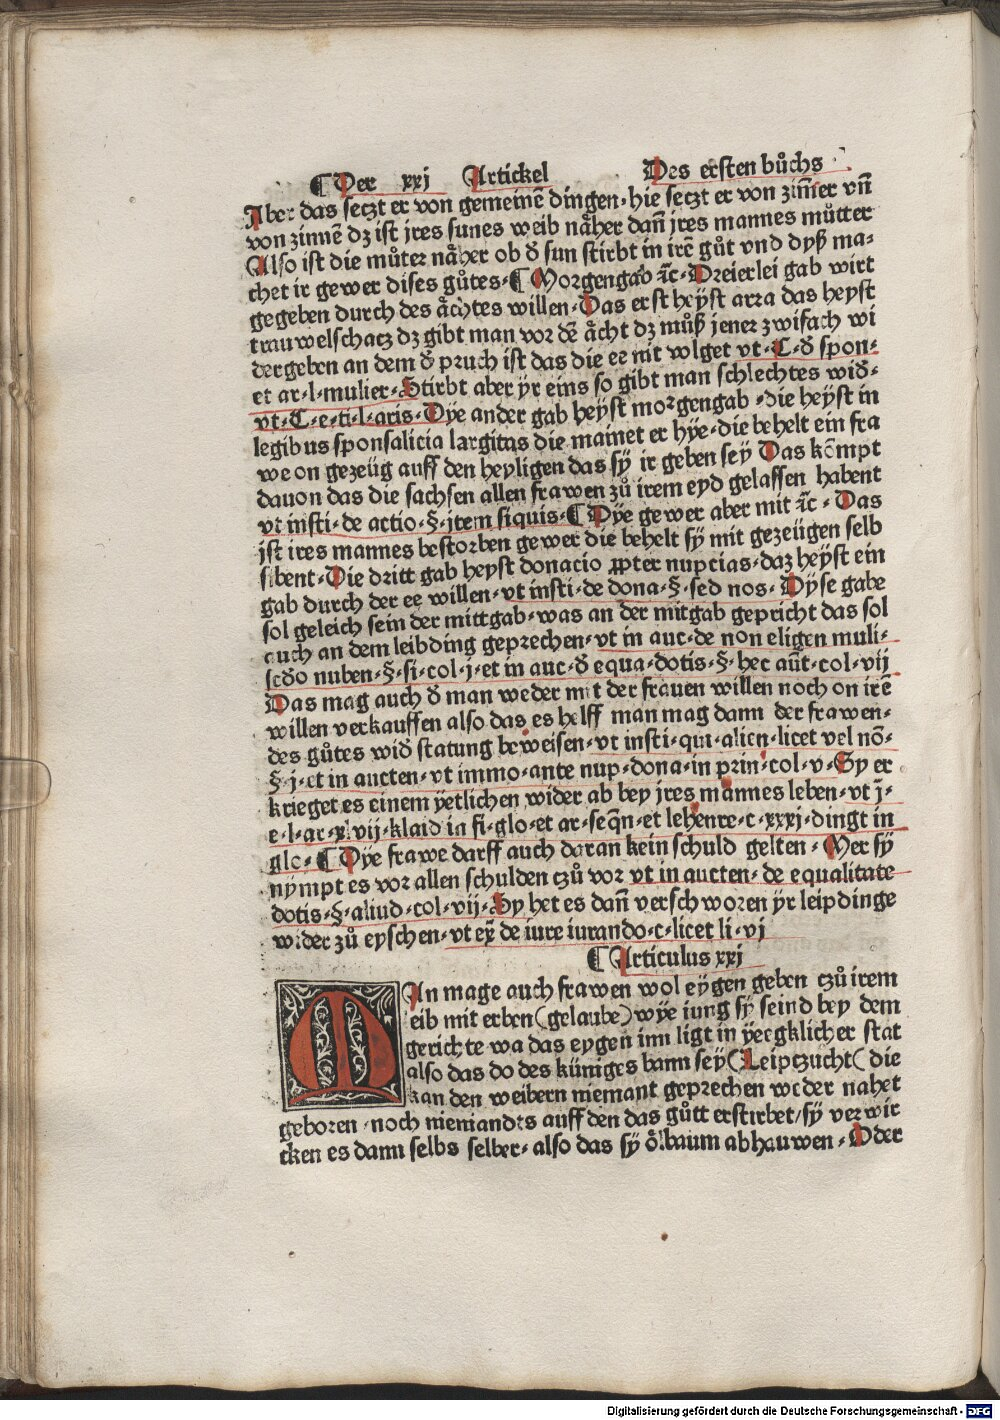 ¶ Der xxj Artickel Des ersten bůchs
Aber das seczt er von gemeinē dingen· hie seczt er von zim̄er vn̄
von zinnē dz ist jres sunes weib nåher dan̄ jres mannes můtter
Also ist die můter nåher ob d̄ sun stirbt in irē gůt vnd dyß ma⸗
chet ir gewer dises gůtes· ¶ Morgengab ꝛc̄· Dreierlei gab wirt
gegeben durch des åchtes willen· Das erst heÿst arra das heyst
trauwelschacz dz gibt man vor dē åcht dz můß jener zwifach wi
dergeben an dem d̄ pruch ist das die ee nit volget vt· C· d̄ spon⸗
et ar· l· mulier· Stirbt aber ÿr eins so gibt man schlechtes wid̄⸗
vt· C· e· ti· l· aris· Dÿe ander gab heÿst morgengab· die heÿst in
legibus sponsalicia largitas die mainet er hÿe· die behelt ein fra
we on gezeüg auff den heyligen das sÿ ir geben seÿ Das kōmpt
dauon das die sachsen allen frawen zů irem eyd gelassen habent
vt insti· de actio· §· jtem siquis· ¶ Dÿe gewer aber mit ꝛc̄· Das
jst ires mannes bestorben gewer die behelt sÿ mit gezeügen selb
sibent· Die dritt gab heyst donacio ꝓpter nupcias· daz heÿst ein
gab durch der ee willen· vt insti· de dona· §· sed nos· Dÿse gabe
sol geleich sein der mittgab· was an der mitgab gepricht das sol
auch an dem leibding geprechen· vt in auc· de non eligen muli⸗
scd̄o nuben· §· si· col· j· et in auc· d̄ equa· dotis· §· hec aūt· col· vij
Das mag auch d̄ man weder mit der frauen willen noch on irē
willen verkauffen also das es helff man mag dann der frawen⸗
des gůtes wid̄ statung beweisen· vt insti· qui· alien· licet vel nō⸗
§· j· et in aucten· vt immo· ante nup· dona· in prin· col· v· Sy er
krieget es einem ÿetlichen wider ab bey jres mannes leben· vt j̄·
e· l· ar· xlvij· klaid in fi· glo· et ar· seqn̄· et lehenre· c· xxxj· dingt in
glo· ¶ Dÿe frawe darff auch daran kein schuld gelten· Mer sÿ
nÿmpt es vor allen schulden czů vor vt in aucten· de equalitate
dotis· §· aliud· col· vij· Sy het es dan̄ verschworen ÿr leipdinge
wider zů eyschen· vt ex̄ de iure iurando· c· licet li· vj
¶ Articulus xxj
MAn mage auch frawen wol eÿgen geben czů irem
leib mit erben (gelaube) wÿe iung sÿ seind bey dem
gerichte wa das eygen inn ligt in ÿeegklicher stat
also das do des küniges bann seÿ (Leipczucht( die
kan den weibern niemant geprechen weder nahet
geboren· noch niemandes auff den das gůtt erstirbet/ sÿ verwir
cken es dann selbs selber· also das sÿ ŏlbaum abhauwen· Oder
Digitalisierung gefördert durch die Deutsche Forschungsgemeinschaft - DFG